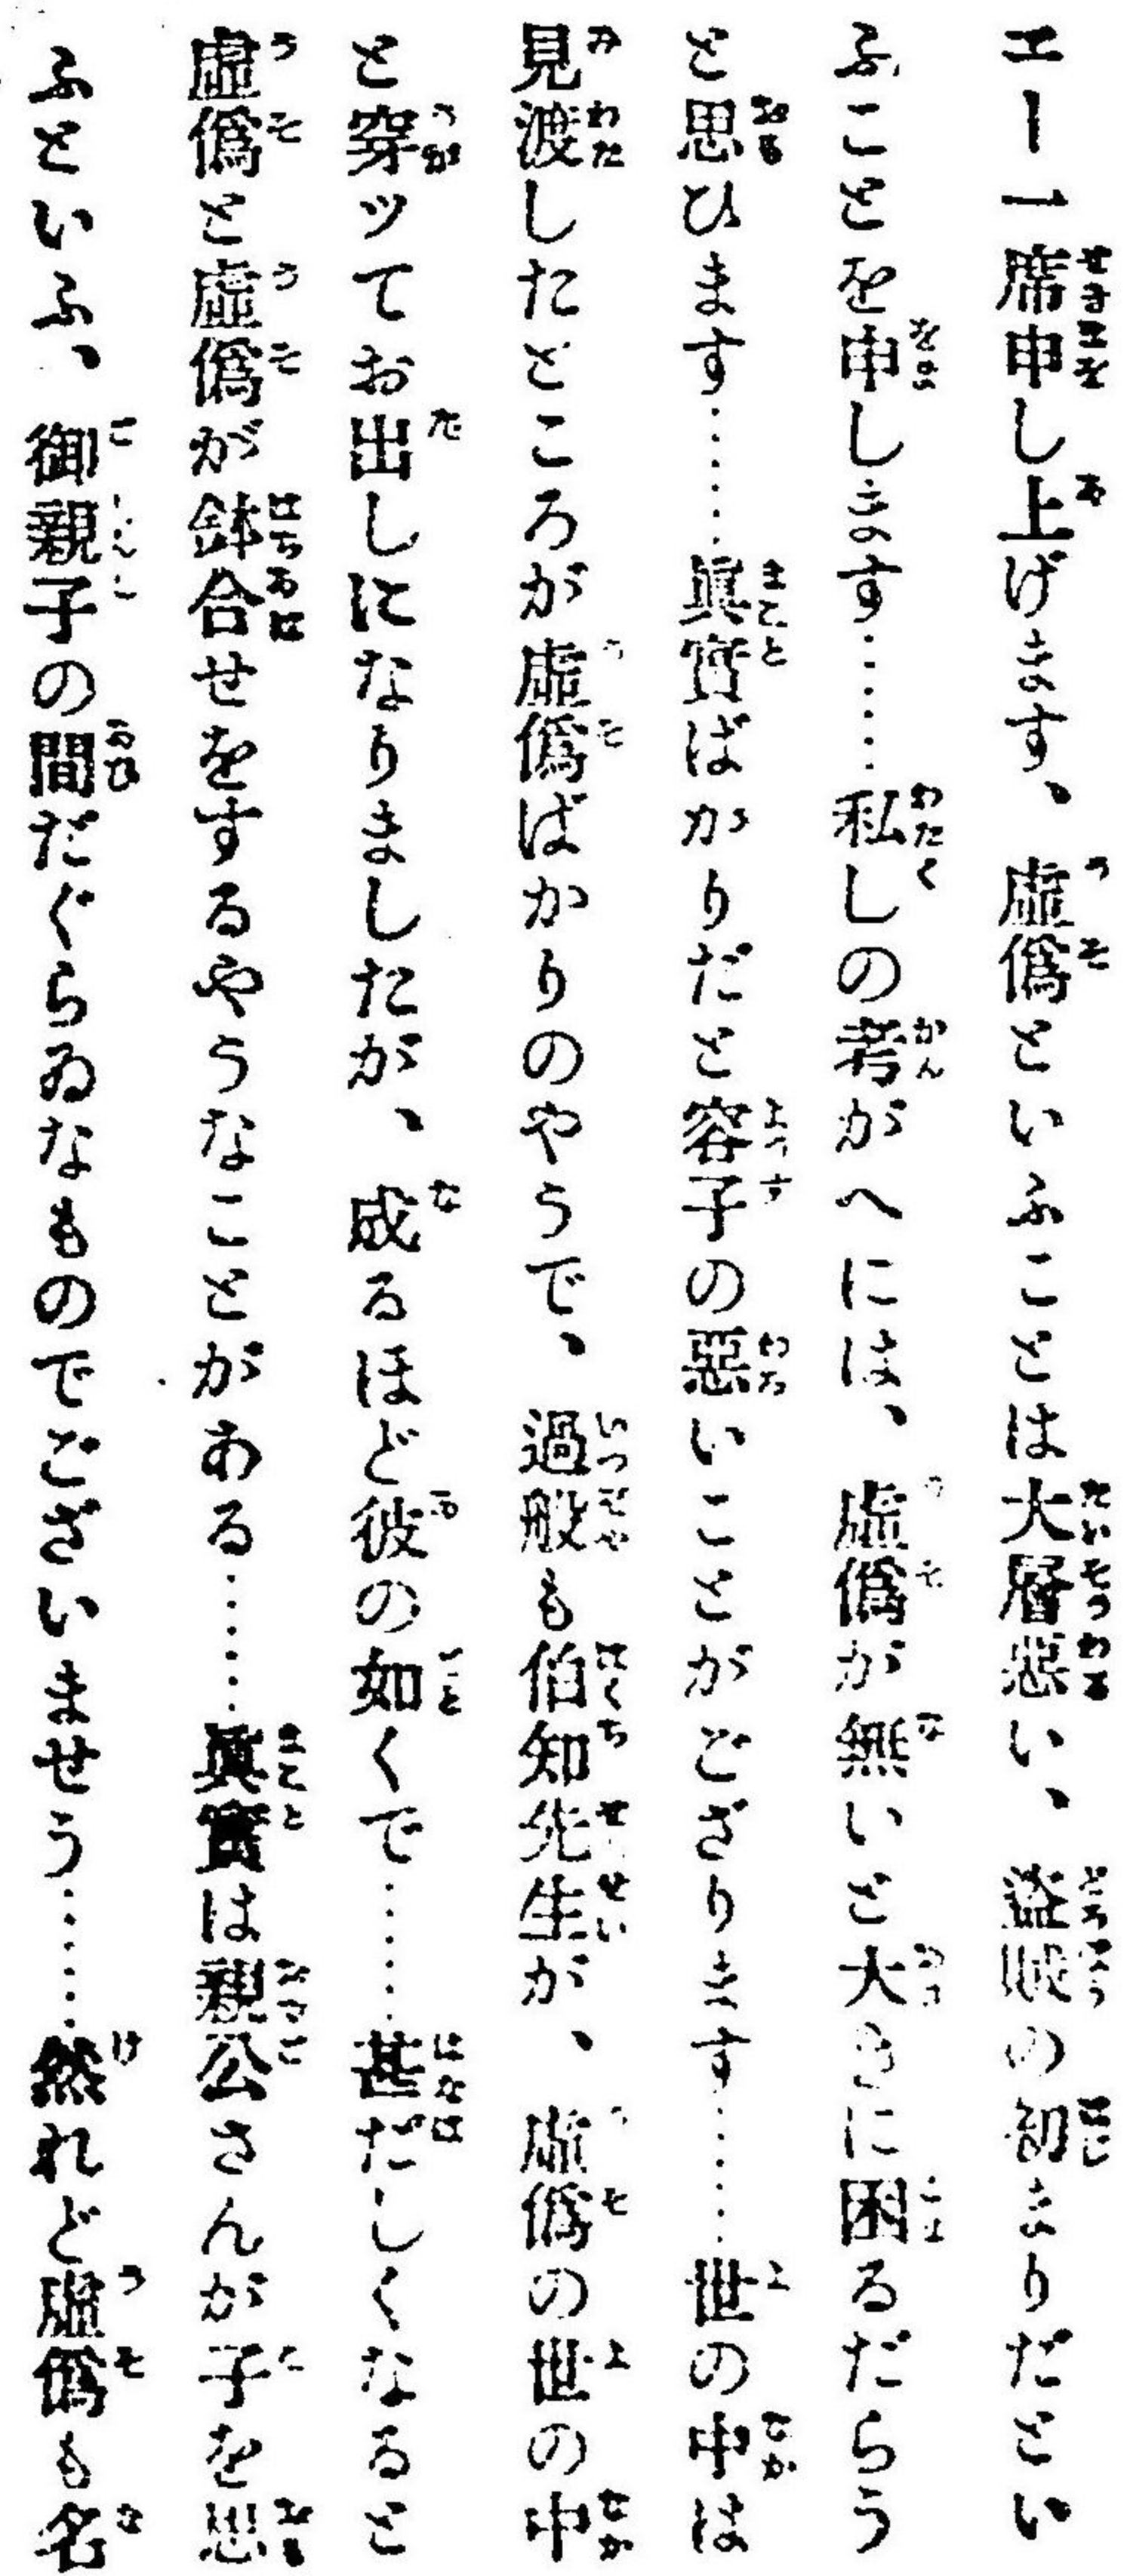 エー一席申し上げます、虛僞といふことは大層惡い、盜賊の初まりだとい
ふことを申します……私しの考がへには、虛僞が無いと大きに困るだらう
と思ひます……眞實ばかりだと容子の惡いことがござります……世の中は
見渡したところが虛僞ばかりのやうで、過般も伯知先生が、虛僞の世の中
と穿ッてお出しになりましたが、成るほど彼の如くで……甚だしくなると
虛僞と虛僞が鉢合せをするやうなことがある……眞實は親公さんが子を思
ふといふ、御親子の間だぐらゐなものでございませう……然れど虛僞も名